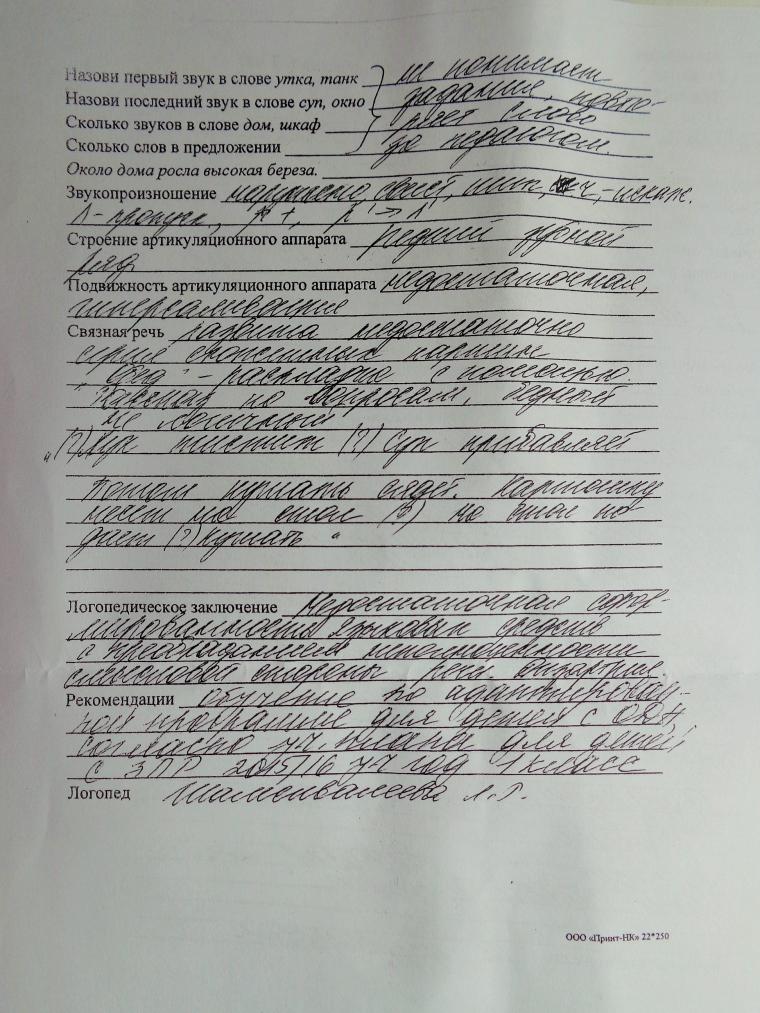 Назови первый звук в слове утка, танк не понимает
Назови последний звук в слове суп, окно задания, повто-
Сколько звуков в слове дом, шкаф ряет слово
Сколько слов в предложении за педагогом.
Около дома росла высокая береза.
Звукопроизношение нарушено, свист, шип, ч,-искаж.
Л-пропуск, р+, р'→л'
Строение артикуляционного аппарата редкий зубной
ряд
Подвижность артикуляционного аппарата недостаточная,
гиперсаливация
Связная речь развита недостаточно
серия сюжетных картин
"Обед" - раскладка с помощью.
Рассказ по вопросам, бедный
не логичный
"(?) Лук чистит (?) Суп прибавляет
Потом кушать сядет. Картошку
несет на стол (?) на стол по-
дает (?) Кушать "
Логопедическое заключение Недостаточная сфор-
мированность языковых средств
с преобладанием неполноценности
смысловой стороны речи. Дизартрия.
Рекомендации обучение по адаптирован-
ной программе для детей с ОВЗ,
согласно уч. плана для детей
с ЗПР 2015/16 уч год 1 класс
Логопед Л.Г.
ООО «Принт-НК» 22*250